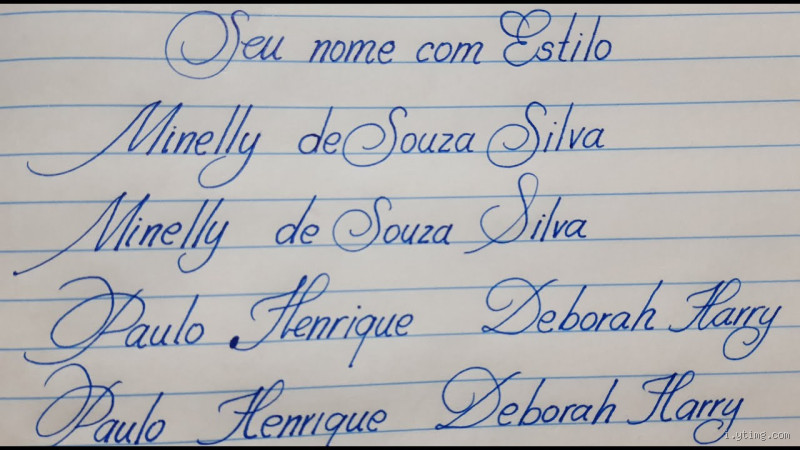 Seu nome com Estilo
Minelly de Souza Silva
Minelly de Souza Silva
Paulo Henrique Deborah Harry
Paulo Henrique Deborah Harry
i.ytimg.com